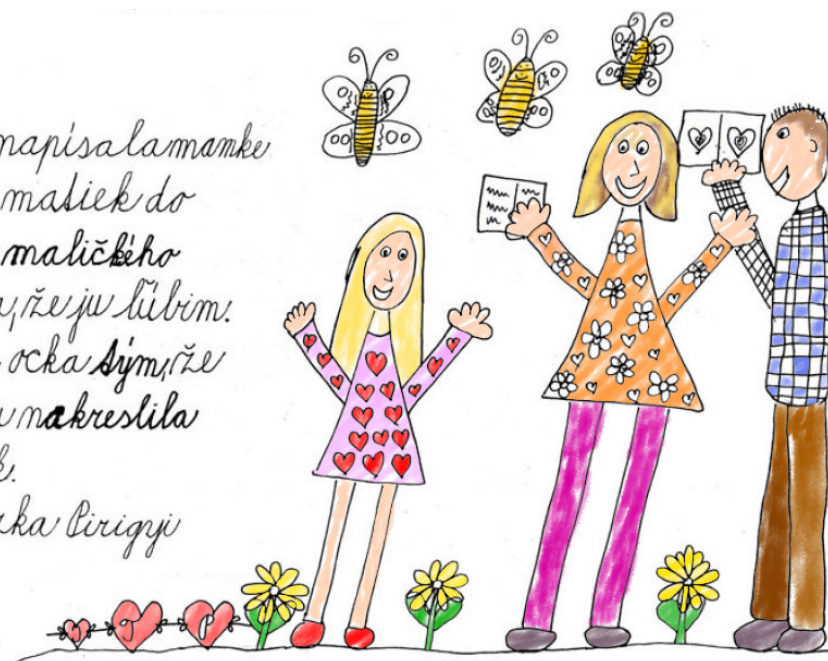 napísala mamke
matiek do
maličkého
, že ju ľúbim.
ocka tým, že
nakreslila
k.
Pirigyi
T P